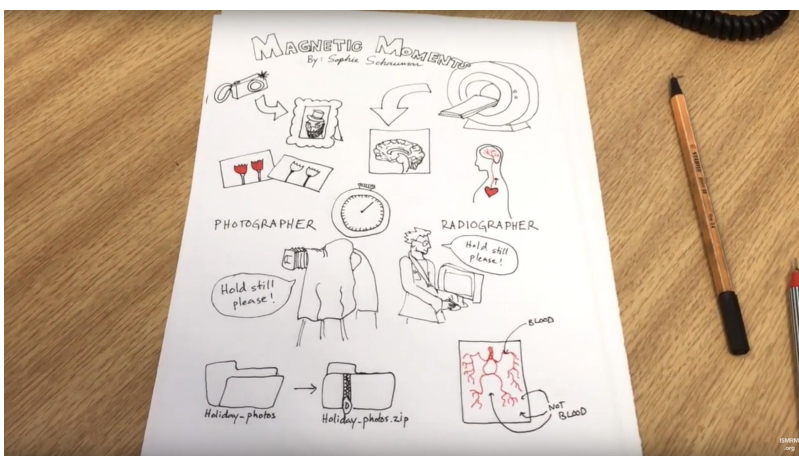 MAGNETIC MOMENTS
By: Sophie Schauman
PHOTOGRAPHER
RADIOGRAPHER
Hold still
please!
Hold still
please!
BLOOD
NOT
BLOOD
Holiday_photos
Holiday_photos.zip
ISMRM
.org